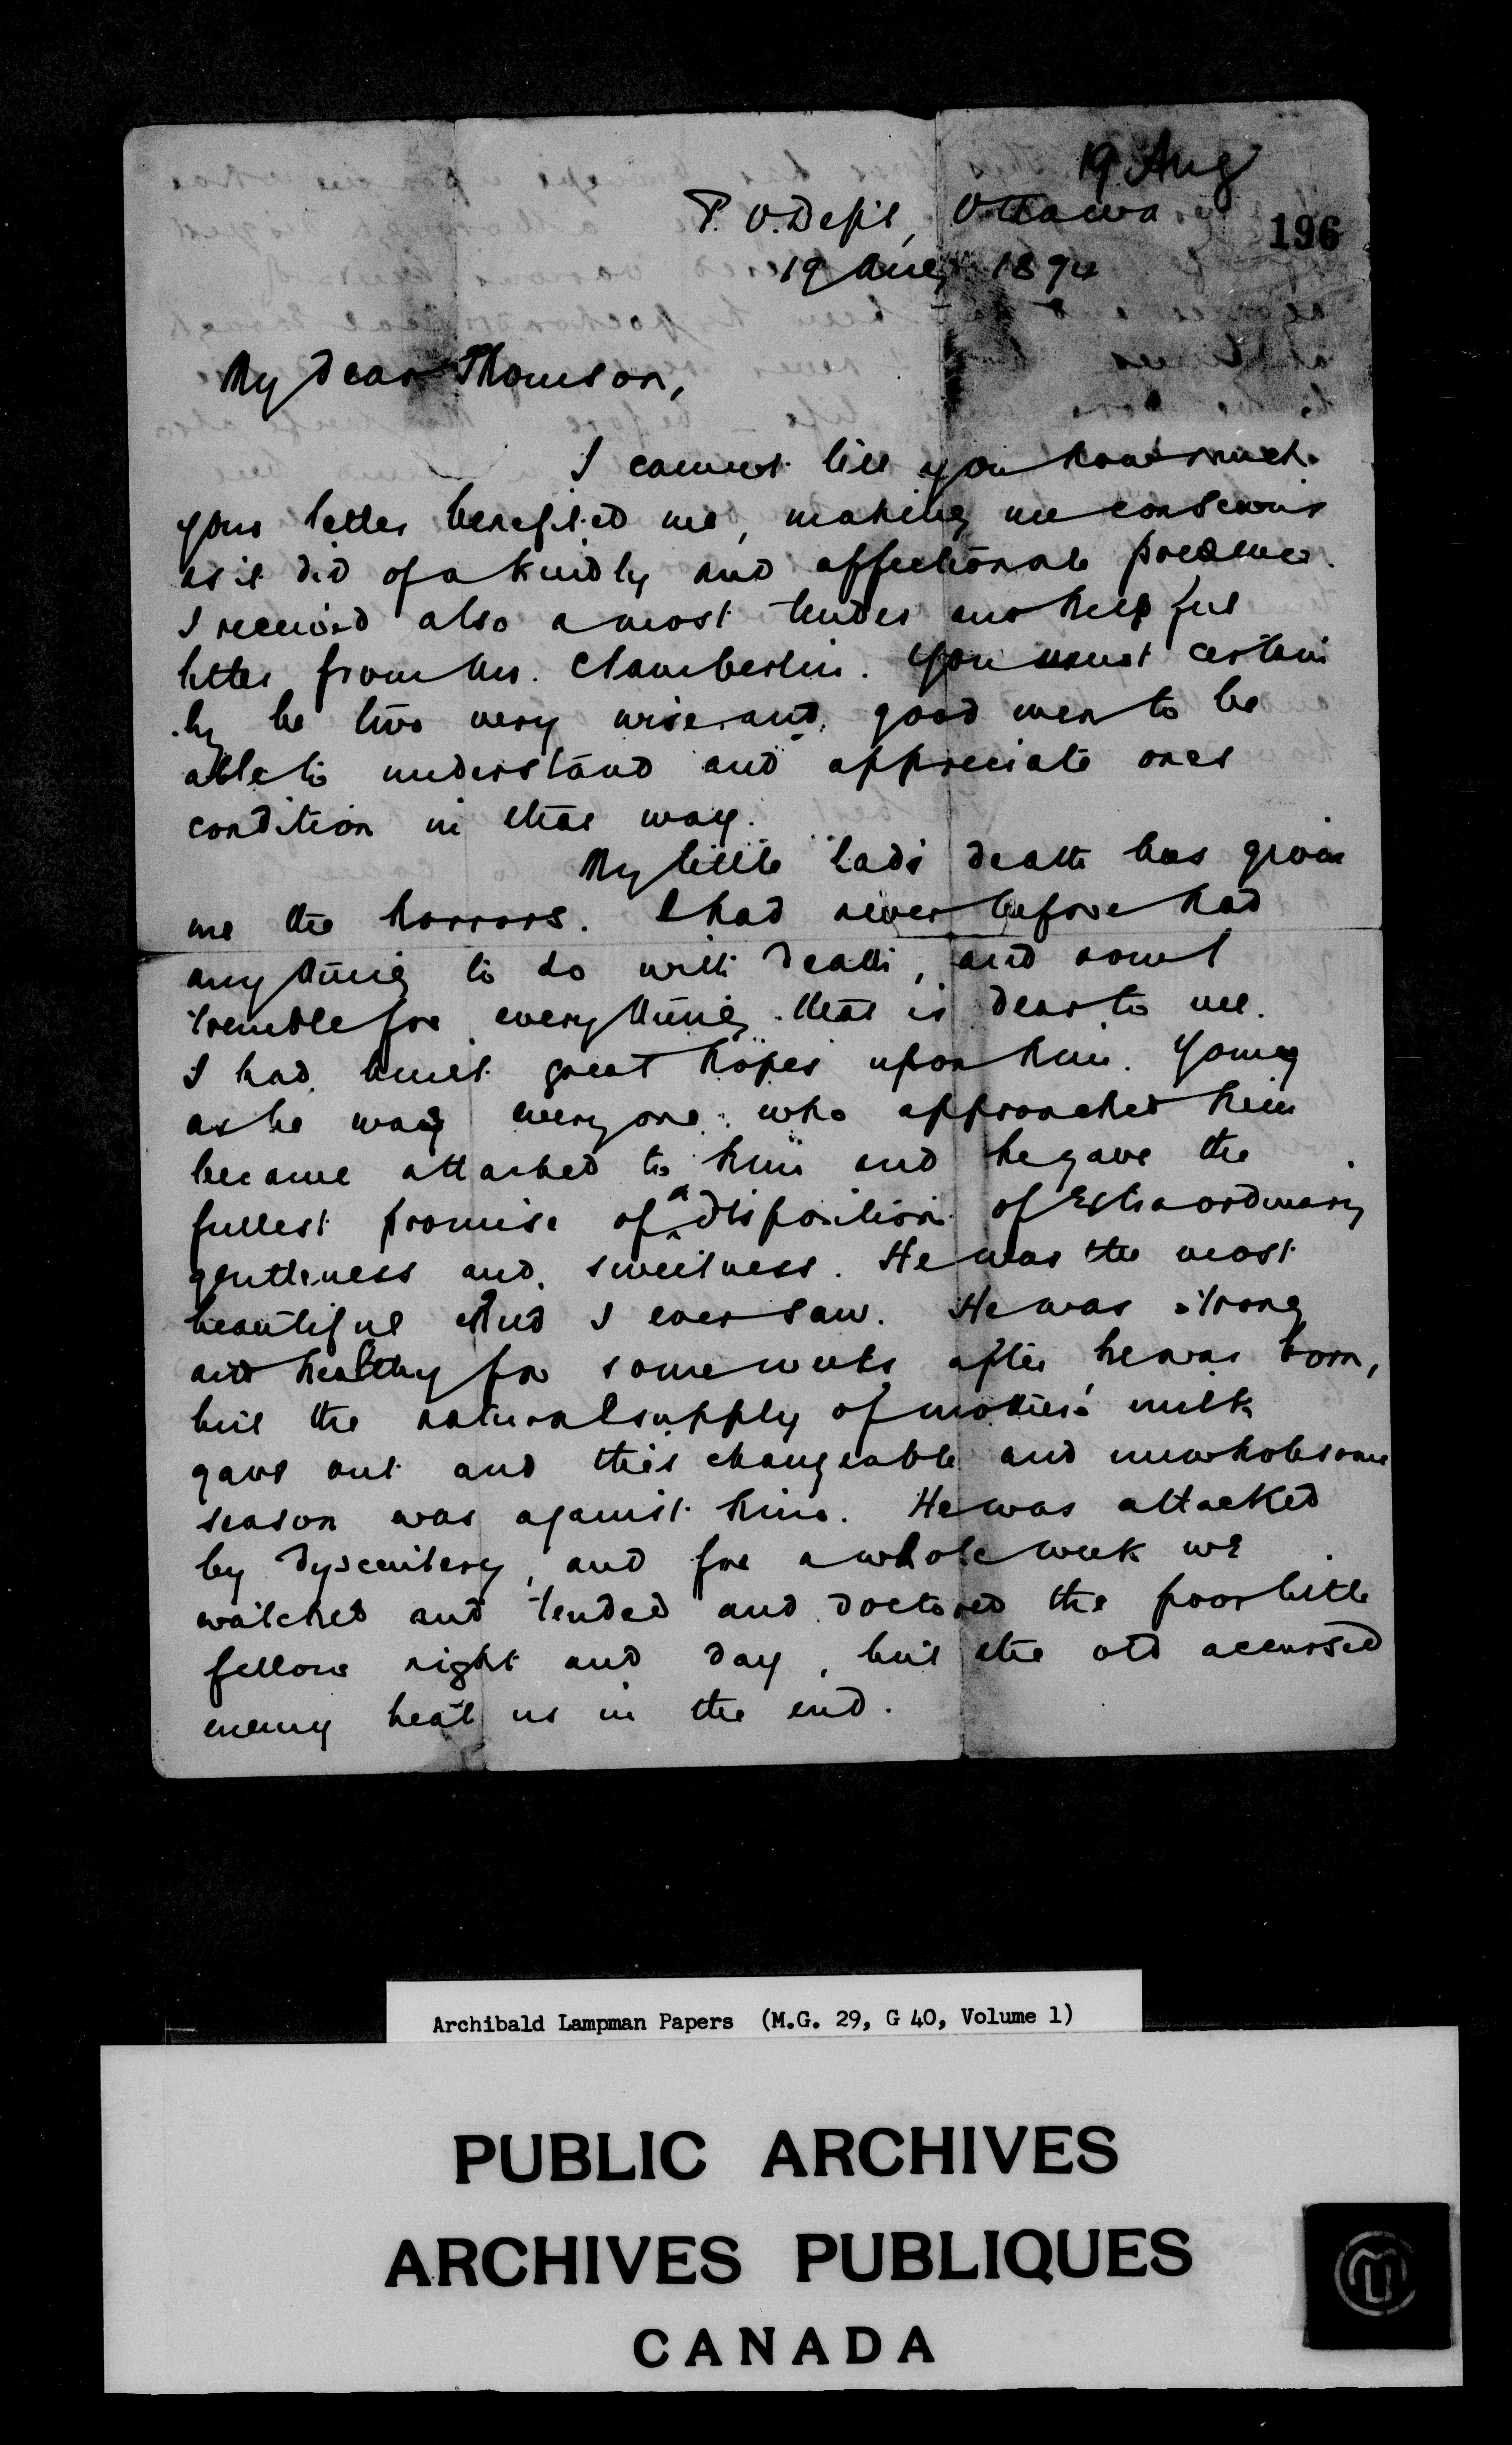 19 Aug
P. O. Dept, Ottawa
196
19 Aug 1894
My dear Thomson,
I cannot tell you how much
your letter benefited me, making me conscious
as it did of a kindly and affectionate presence.
I received also a most tender and helpful
letter from Mr. Chamberlin. You must certain
ly be two very wise and good men to be
able to understand and appreciate ones
condition in that way.
My little lads death has given
me the horrors. I had never before had
anything to do with death, and now I
tremble for everything that is dear to me.
I had built great hopes upon him. Young
as he was everyone who approached him
became attached to him and he gave the
fullest promise of a disposition of extraordinary
gentleness and sweetness. He was the most
beautiful child I ever saw. He was strong
and healthy for some weeks after he was born,
but the natural supply of mother's milk
gave out and this changeable and unwholesome
season was against him. He was attacked
by dysentery, and for a whole week we
watched and tended and doctored the poor little
fellow night and day, but the old accursed
enemy beat us in the end.
Archibald Lampman Papers (M.G. 29, G 40, Volume 1)
PUBLIC ARCHIVES
ARCHIVES PUBLIQUES
CANADA